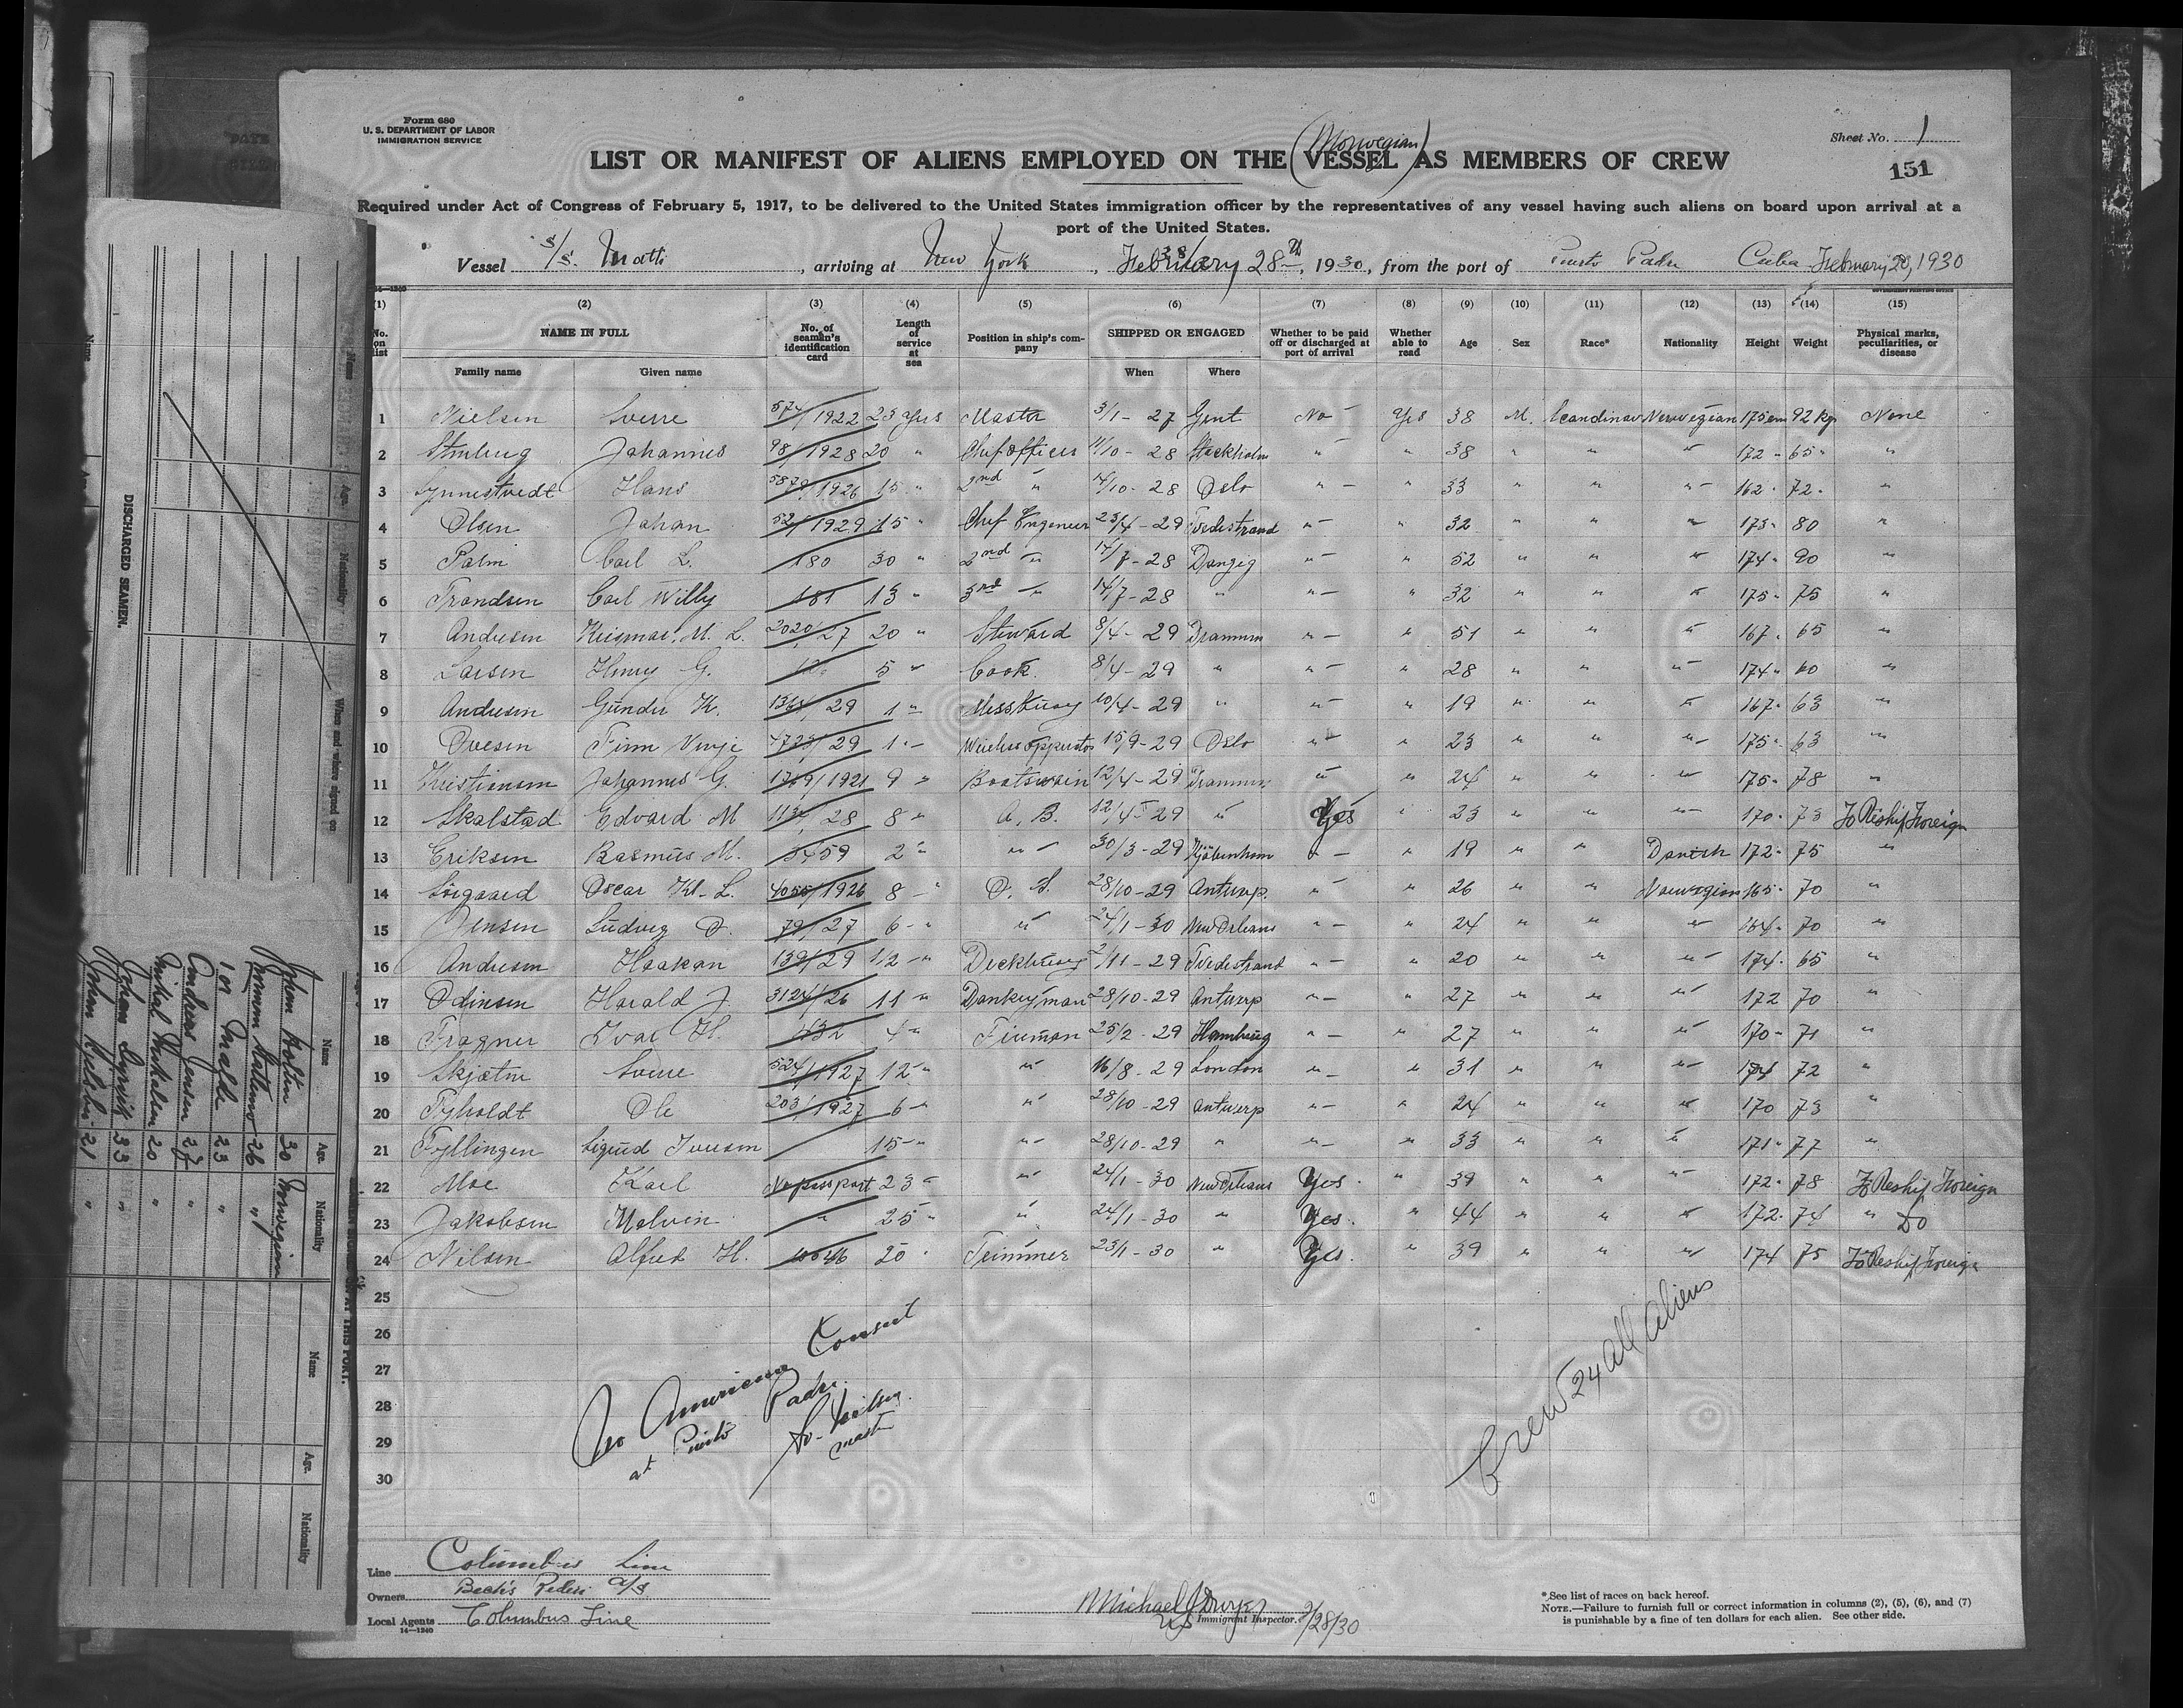 Form 680
U. S. DEPARTMENT OF LABOR
IMMIGRATION SERVICE
Sheet No. 1
151
(Norwegian)
LIST OR MANIFEST OF ALIENS EMPLOYED ON THE VESSEL AS MEMBERS OF CREW
Required under Act of Congress of February 5, 1917, to be delivered to the United States immigration officer by the representatives of any vessel having such aliens on board upon arrival at a
port of the United States.
Vessel S/S. , arriving at New York , February 28th, 1930, from the port of Puerto Padre Cuba February 20, 1930
(1) (2) (3) (4) (5) (6) (7) (8) (9) (10) (11) (12) (13) (14) (15)
No. on list NAME IN FULL No. of seaman's identification card Length of service at sea Position in ship's company SHIPPED OR ENGAGED Whether to be paid off or discharged at port of arrival Whether able to read Age Sex Race* Nationality Height Weight Physical marks, peculiarities, or disease
Family name Given name When Where
1 Nielsen Sverre 574/1922 23 yrs Master 3/1-27 Gent No Yes 38 M. Scandinav Norwegian 175 cm 92 kg None
2 Johannes 98/1928 20 " Chif Officer 11/10-28 Stockholm " " 38 " " " 172 " 65 " "
3 Synnestvedt Hans 1926 15 " 2nd " 14/10-28 Oslo " " 33 " " " 162 " 72 " "
4 Olsen Johan 52/1929 15 " Chif Engineer 23/4-29 Tvedestrand " " 32 " " " 173 " 80 "
5 Palm Carl L. 180 30 " 2nd " 14/7-28 Danzig " " 52 " " " 174 " 90 "
6 Trondsen Carl Willy 181 13 " 3rd " 14/7-28 " " " 32 " " " 175 " 75 "
7 Andresen M. L. 2020/27 20 " Steward 8/4-29 Drammen " " 51 " " " 167 " 65 "
8 Larsen Henry G. 5 " Cook 8/4-29 " " " 28 " " " 174 " 60 "
9 Andresen Gunder K. 29 1 " 10/4-29 " " " 19 " " " 167 " 63 "
10 Ovesen Finn Vinje 29 1 " 15/9-29 Oslo " " 23 " " " 175 " 63 "
11 Kristiansen Johannes G. 1921 9 " Boatswain 12/4-29 Drammen " " 24 " " " 175 " 78 "
12 Skalstad Edvard M 28 8 " A. B. 12/4-29 " Yes " 23 " " " 170 " 73 To Reship Foreign
13 Eriksen Rasmus M. 3459 2 " " 30/3-29 Kjöbenhavn " " 19 " " Danish 172 " 75 "
14 Sörgaard Oscar Kr. L. 4055/1926 8 " O. S. 28/10-29 Antwerp. " " 26 " " Norwegian 165 " 70 "
15 Jensen Ludvig O. 79/27 6 " " 24/1-30 New Orleans " " 24 " " " 164 " 70 "
16 Andresen Haakan 139/29 1/2 " 2/11-29 Tvedestrand " " 20 " " " 174 " 65 "
17 Odinsen Harald J. 3124/26 11 " Donkeyman 28/10-29 Antwerp " " 27 " " " 172 70 "
18 Fragner Ivar H. 432 4 " Fireman 25/2-29 Hamburg " " 27 " " " 170 " 71 "
19 Skjøtm Sverre 524/1927 12 " " 16/8-29 London " " 31 " " " 174 72 "
20 Tyholdt Ole 203/1927 6 " " 28/10-29 Antwerp " " 24 " " " 170 73 "
21 Fyllingen Sigurd Iversen 15 " " 28/10-29 " " " 33 " " " 171 " 77 "
22 Moe Karl No passport 23 " " 24/1-30 New Orleans Yes. " 39 " " " 172 " 78 To Reship Foreign
23 Jakobsen Melvin " 25 " " 24/1-30 " Yes. " 44 " " " 172 " 74 " Do
24 Nilsen Alfred H. 20 " Trimmer 23/1-30 " Yes. " 39 " " " 174 75 To Reship Foreign
25
26
27
28
29
30
No American Consul
at Puerto Padre.
master
Crew 24 all aliens
Line Columbus Line
Owners Bech's Rederi A/S
Local Agents Columbus Line
14—1240
Michael J Dwyer
US Immigrant Inspector. 2/28/30
* See list of races on back hereof.
NOTE.—Failure to furnish full or correct information in columns (2), (5), (6), and (7)
is punishable by a fine of ten dollars for each alien. See other side.
DISCHARGED SEAMEN.
Name Age. Nationality When and where signed on
Name Age. Nationality
30 Norwegian
26 "
23 "
Andreas Jensen 27 "
20 "
Johan 33 "
John 21 "
Name Age. Nationality